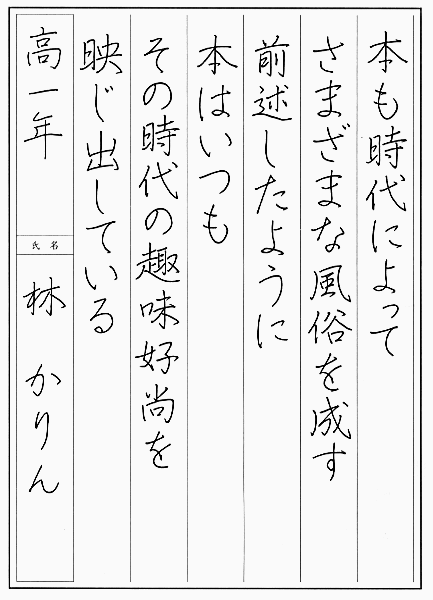 本も時代によって
さまざまな風俗を成す
前述したように
本はいつも
その時代の趣味好尚を
映じ出している
高一年
氏名
林 かりん